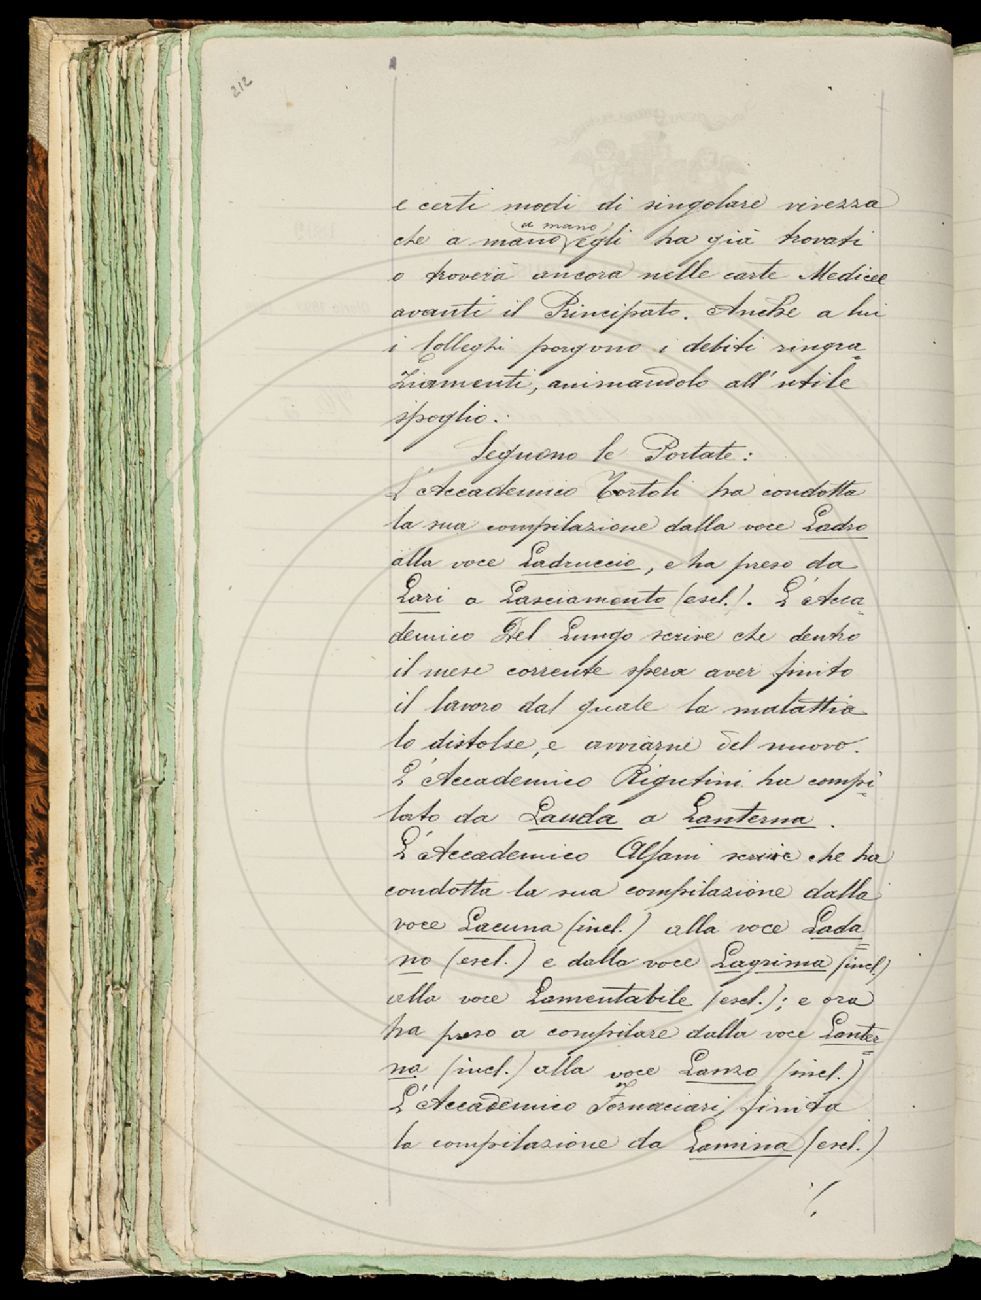 212
e certi modi di singolare vivezza
che a mano a mano egli ha già trovati
o troverà ancora nelle carte Medicee
avanti il Principato. Anche a lui
i Colleghi porgono i debiti ringra=
ziamenti, animandolo all'utile
spoglio.
Seguono le Portate:
L'Accademico Tortoli ha condotta
la sua compilazione dalla voce Ladro
alla voce Ladruccio, e ha preso da
Lari a Lasciamento (escl.). L'Acca=
demico Del Lungo scrive che dentro
il mese corrente spera aver finito
il lavoro dal quale la malattia
lo distolse, e avviarne del nuovo.
L'Accademico Rigutini ha compi=
lato da Lauda a Lanterna.
L'Accademico Alfani scrive che ha
condotta la sua compilazione dalla
voce Lacuna (incl.) alla voce Lada=
no (escl.) e dalla voce Lagrima (incl.)
alla voce Lamentabile (escl.); e ora
ha preso a compilare dalla voce Lanter=
na (incl.) alla voce Lanzo (incl.)
L'Accademico Fornaciari, finita
la compilazione da Lamina (escl.)